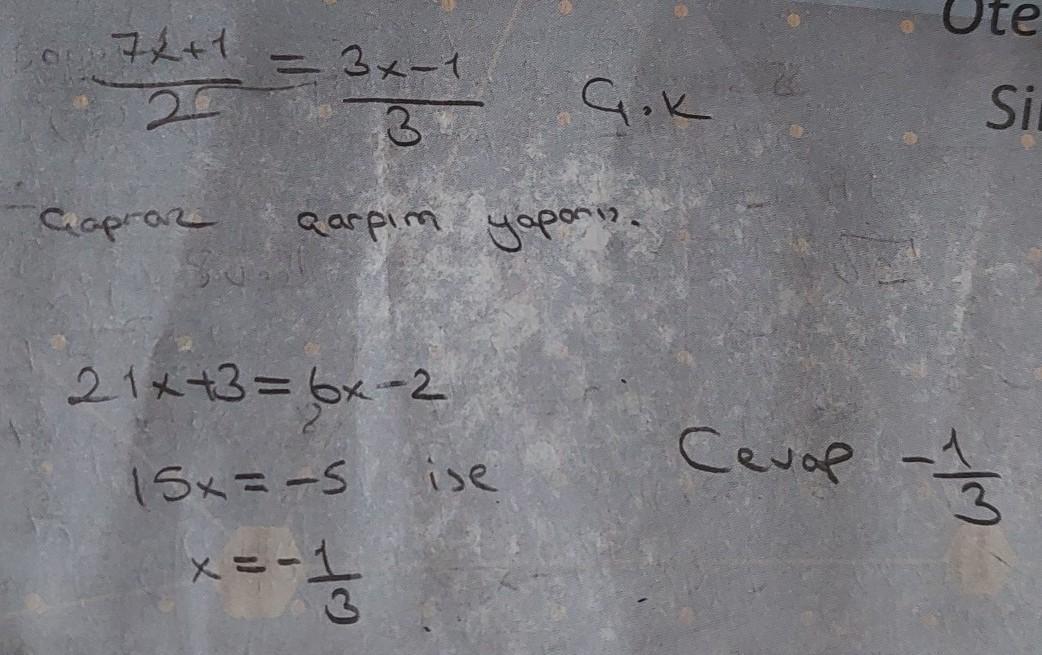 7x+1/2 = 3x-1/3 Ç.K
Çapraz çarpım yaparız.
21x+3=6x-2
15x=-5 ise
Cevap -1/3
x=-1/3
Öte
Si